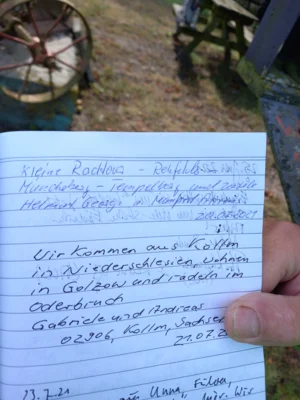 Kleine Radtour - Rehfelde
Müncheberg - Tempelberg und zurück
Helmut George u. Manfred
20.07.2021
Wir kommen aus Kollm
in Niederschlesien, wohnen
in Golzow und radeln im
Oderbruch
Gabriele und Andreas
02906, Kollm, Sachsen
21.07.
23.7.21
Unna,
Wir